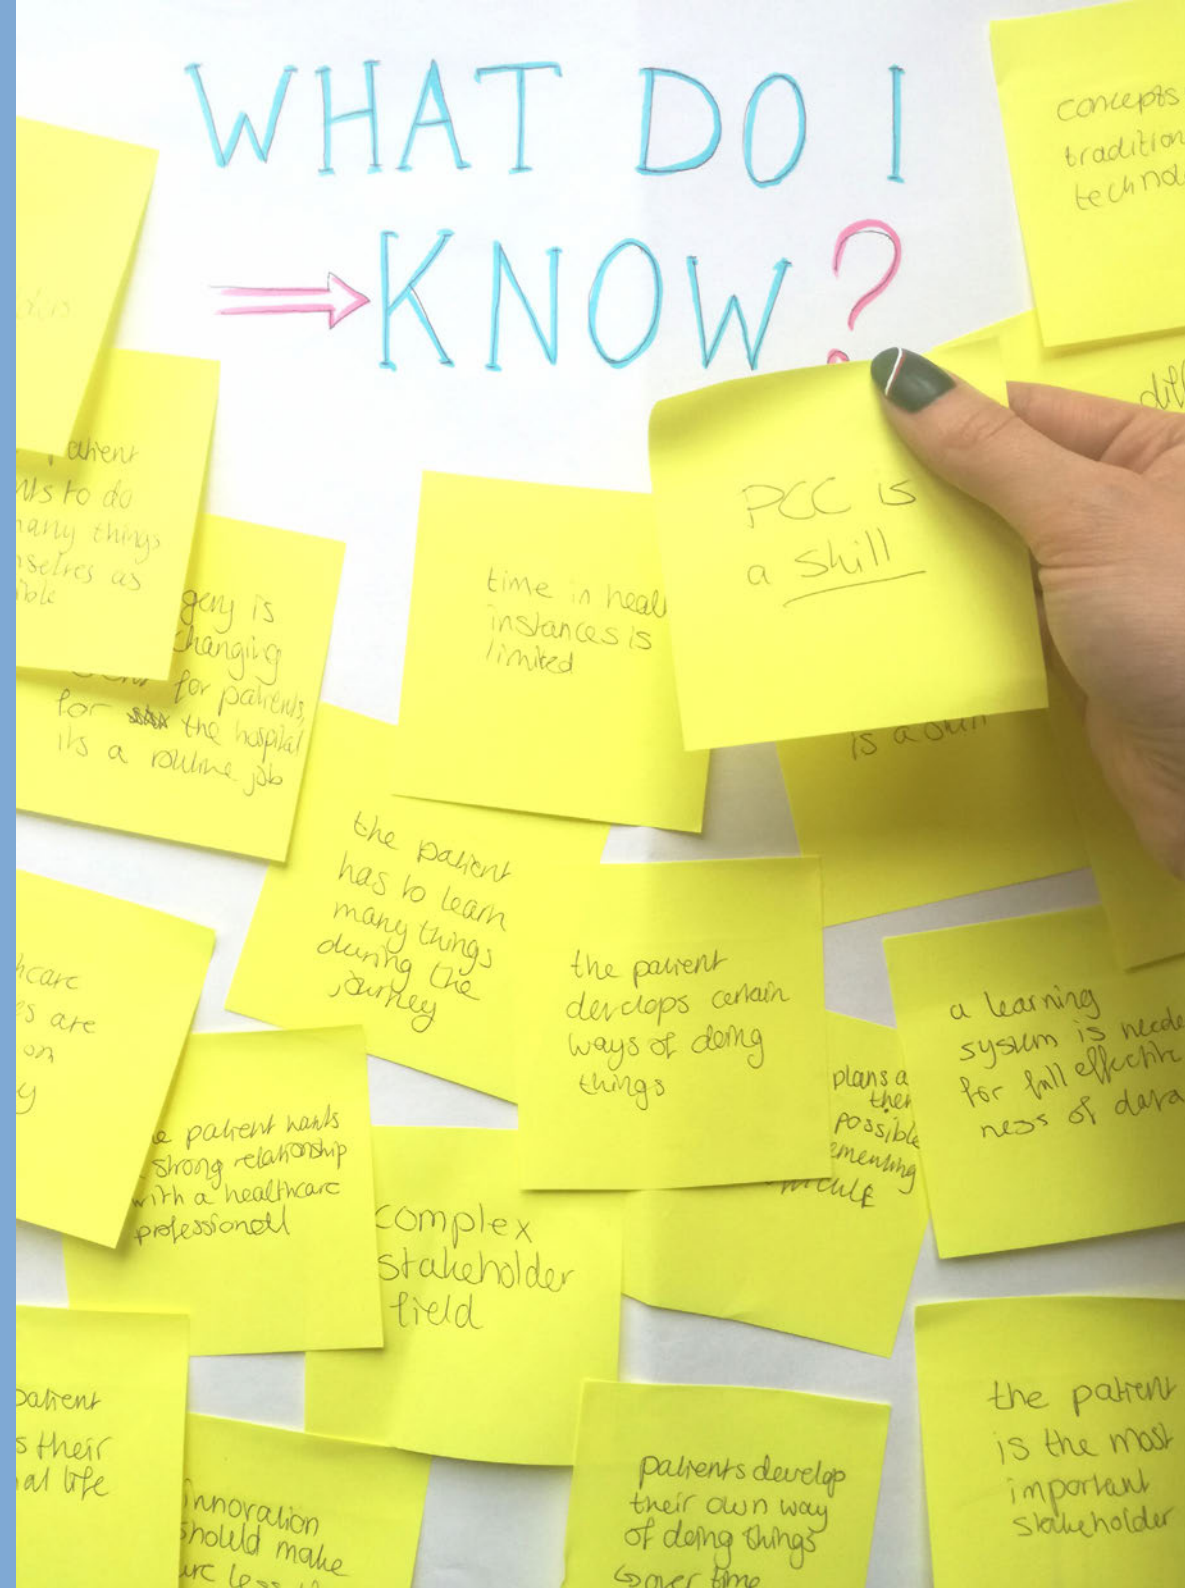 WHAT DO I
KNOW?
concepts
tradition
technol
patient
nts to do
many things
mselves as
ible
gery is
changing
for patients,
for the hospital
its a routine job
time in heal
instances is
limited
PCC is
a skill
is a
the patient
has to learn
many things
during the
journey
the patient
develops certain
ways of doing
things
a learning
system is neede
for full effective
ness of data
plans a
ther
possible
ementing
hcare
es are
on
y
patient wants
strong relationship
with a healthcare
professionall
complex
stakeholder
field
patient
s their
al life
innovation
should make
patients develop
their own way
of doing things
↳over time
the patient
is the most
important
stakeholder